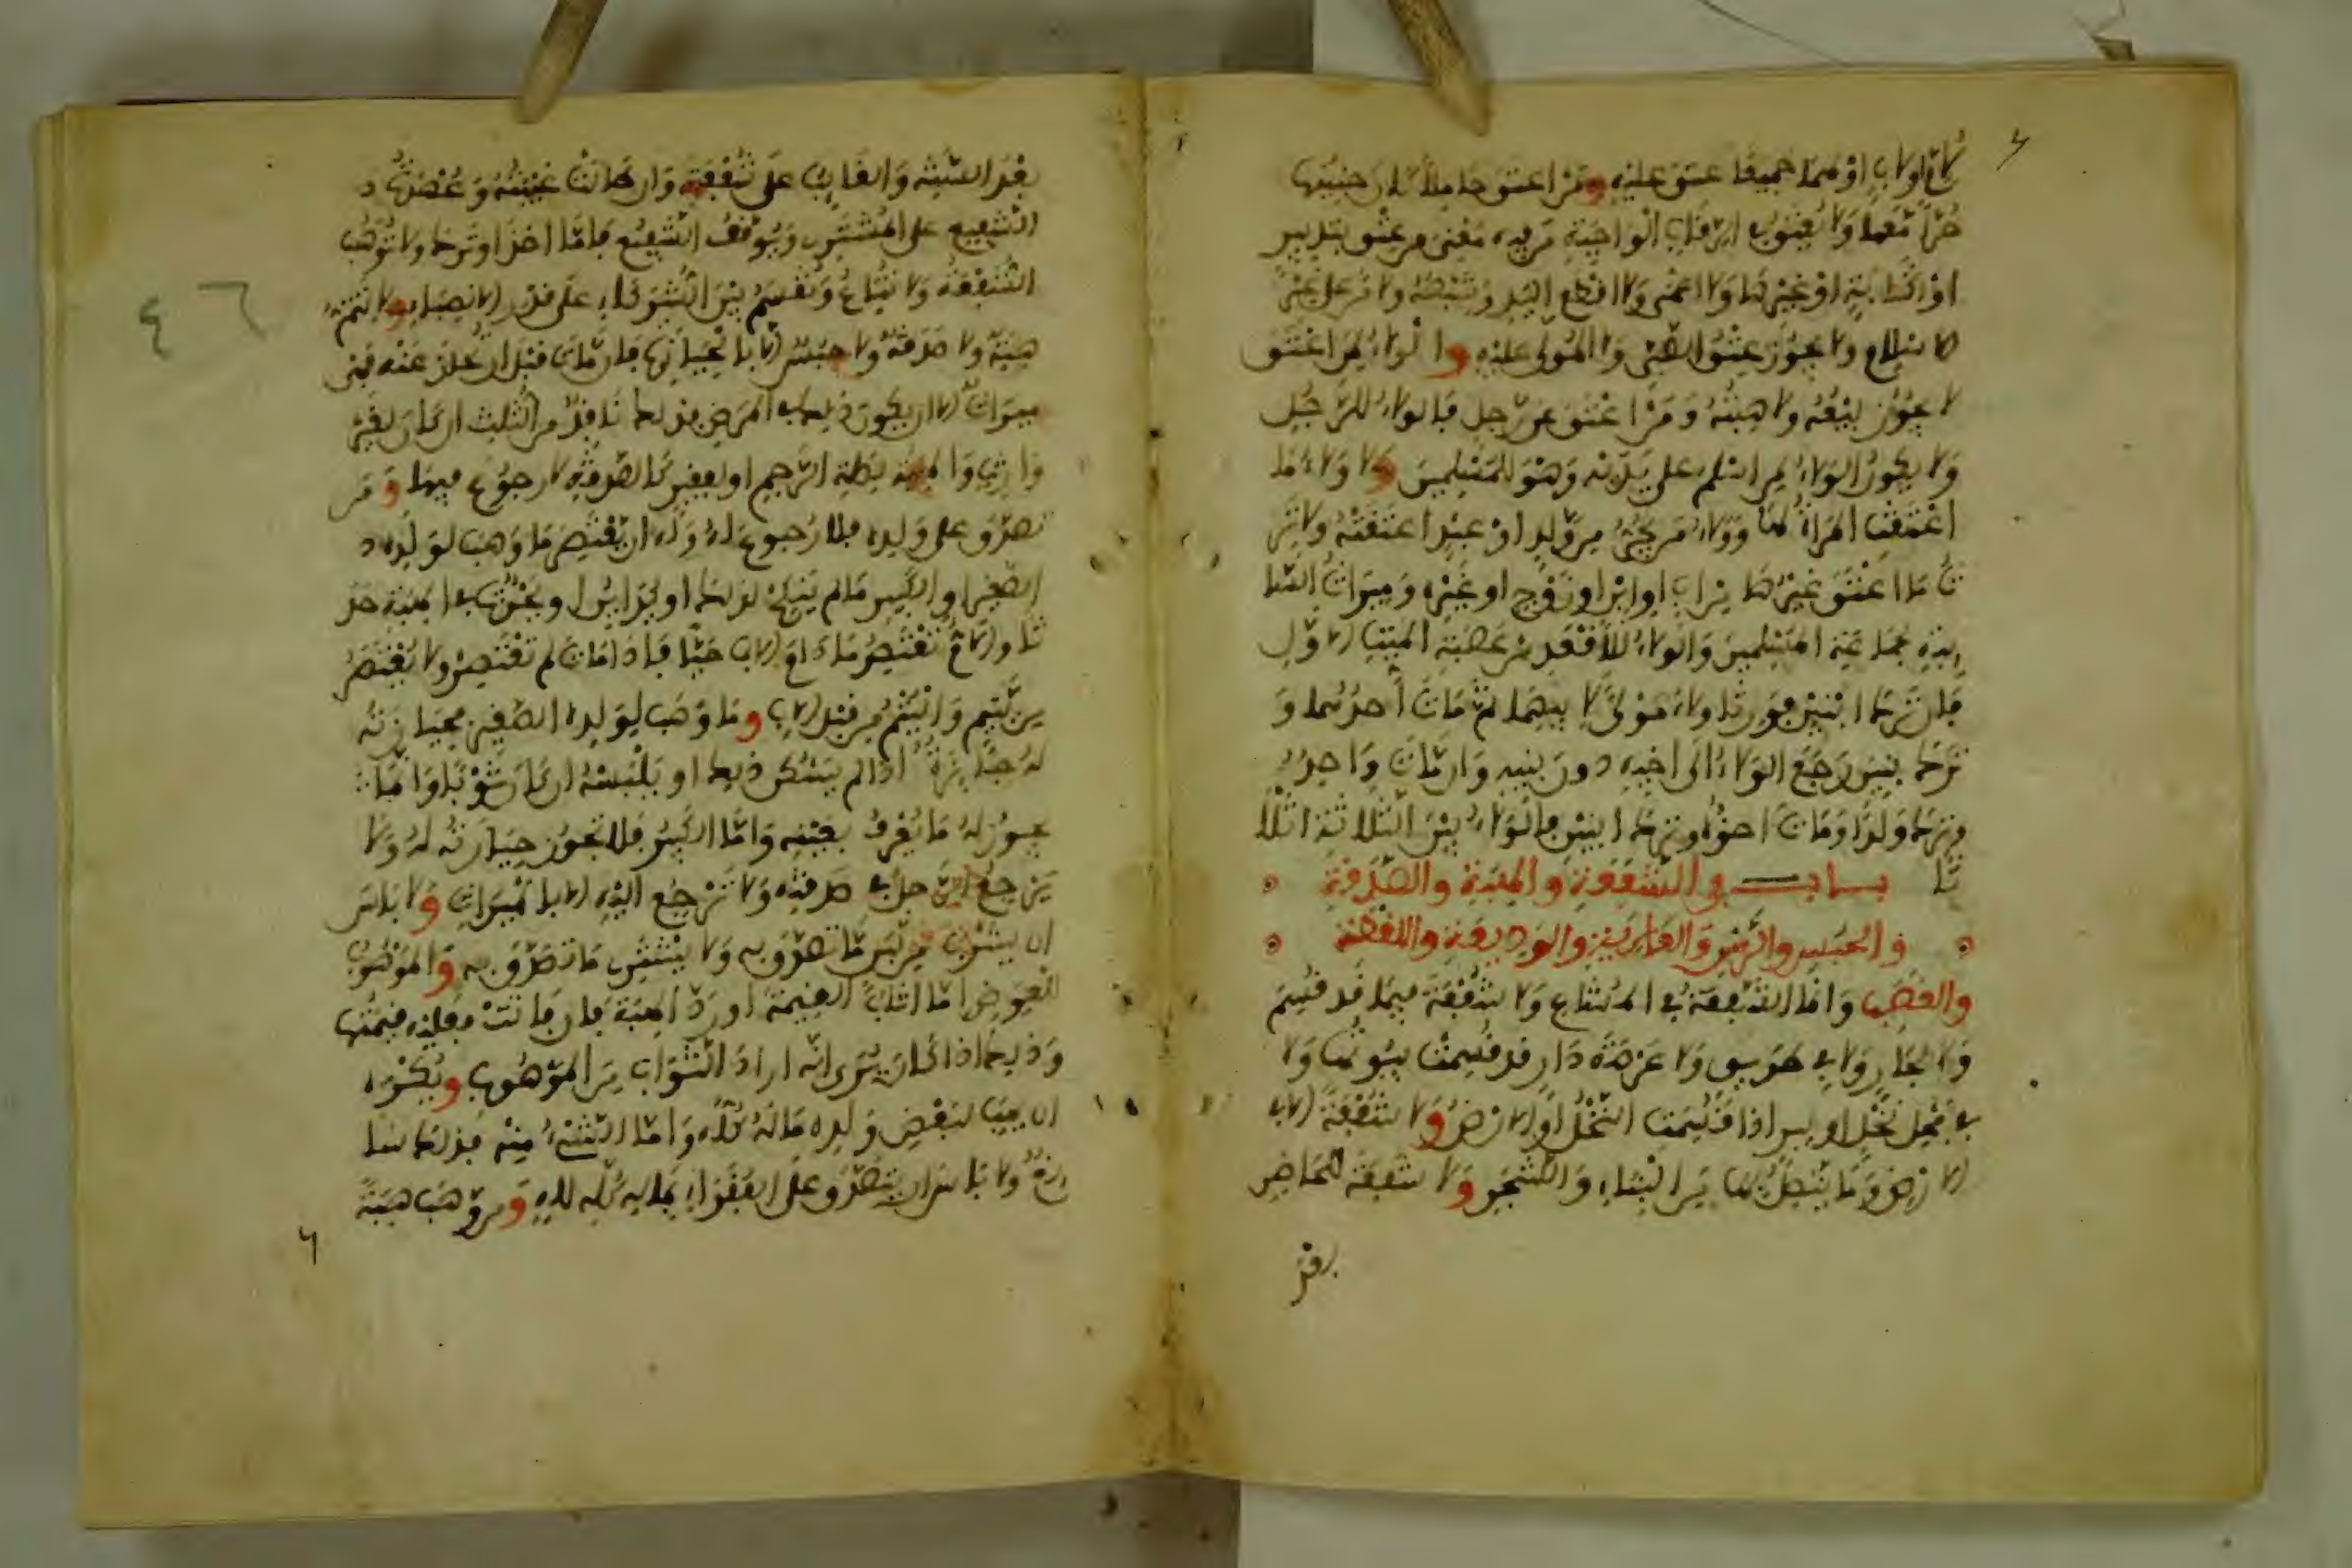 لأم أو لأب أو لهما جميعا عتق عليه ومن أعتق حاملا كان جنينها
حرا معها ولا يعتق في الرقاب الواجبة من فيه معنى من عتق بتدبير
أو كتابة أو غيرهما ولا أعمى ولا أقطع اليد وشبهه ولا من على غير
الاسلام ولا يجوز عتق الصبي ولا المولى عليه والولاء لمن أعتق
لا يجوز بيعه ولا هبته ومن أعتق عن رجل فالولاء للرجل
ولا يكون الولاء لمن أسلم على يديه وهو للمسلمين وولاء ما
أعتقت المرأة لها وولاء من يجر من ولد أو عبد أعتقته ولا تر
ث ما أعتق غيرها من أب أو ابن أو زوج أو غيره وميراث السا
ئبة لجماعة المسلمين والولاء للأقعد من عصبة الميت الأول
فإن ترك ابنين فورثا ولاء مولى لأبيهما ثم مات أحدهما و
ترك بنين رجع الولاء إلى أخيه دون بنيه وإن مات واحد
وترك ولدا ومات أخوه وترك ابنين فالولاء بين الثلاثة أثلا
ثا باب في الشفعة والهبة والصدقة
والحبس والرهن والعارية والوديعة واللقطة
والغصب وإنما الشفعة في المشاع ولا شفعة فيما قد قسم
ولا لجار ولا في طريق ولا عرصة دار قد قسمت بيوتها ولا
في فحل نخل أو بير إذا قسمت النخل أو الأرض ولا شفعة إلا في
الأرض وما يتصل بها من البناء والشجر ولا شفعة للحاضر
بعد السنة والغائب على شفعته وإن طالت غيبته وعهدة
الشفيع على المشتري ويوقف الشفيع فإما أخذ أو ترك ولا توهب
الشفعة ولا تباع وتقسم بين الشركاء على قدر الأنصباء ولا تتم
هبة ولا صدقة ولا حبس إلا بالحيازة فإن مات قبل أن تحاز عنه فهي
ميراث إلا أن يكون ذلك في المرض فذلك نافذ من الثلث إن كان لغير
وارث والهبة لصلة الرحم أو لفقير كالصدقة لا رجوع فيها ومن
تصدق على ولده فلا رجوع له وله أن يعتصر ما وهب لولده
الصغير أو الكبير ما لم ينكح لذلك أو يداين أو يحدث في الهبة حد
ثا والأم تعتصر ما دام الأب حيا فإذا مات لم تعتصر ولا يعتصر
من يتيم واليتم من قبل الأب وما وهب لولده الصغير فحيازته
له جائزة إذا لم يسكن ذلك أو يلبسه إن كان ثوبا وإنما
يجوز له ما يعرف بعينه وأما الكبير فلا تجوز حيازته له ولا
يرجع الرجل في صدقته ولا ترجع إليه إلا بالميراث ولا بأس
أن يشرب من لبن ما تصدق به ولا يشتري ما تصدق به والموهوب
للعوض إما أثاب القيمة أو رد الهبة فإن فاتت فعليه قيمتها
وذلك إذا كان يرى أنه أراد الثواب من الموهوب ويكره
أن يهب لبعض ولده ماله كله وأما الشيء منه فذلك سا
ئغ ولا بأس أن يتصدق على الفقراء بماله كله لله ومن وهب هبة